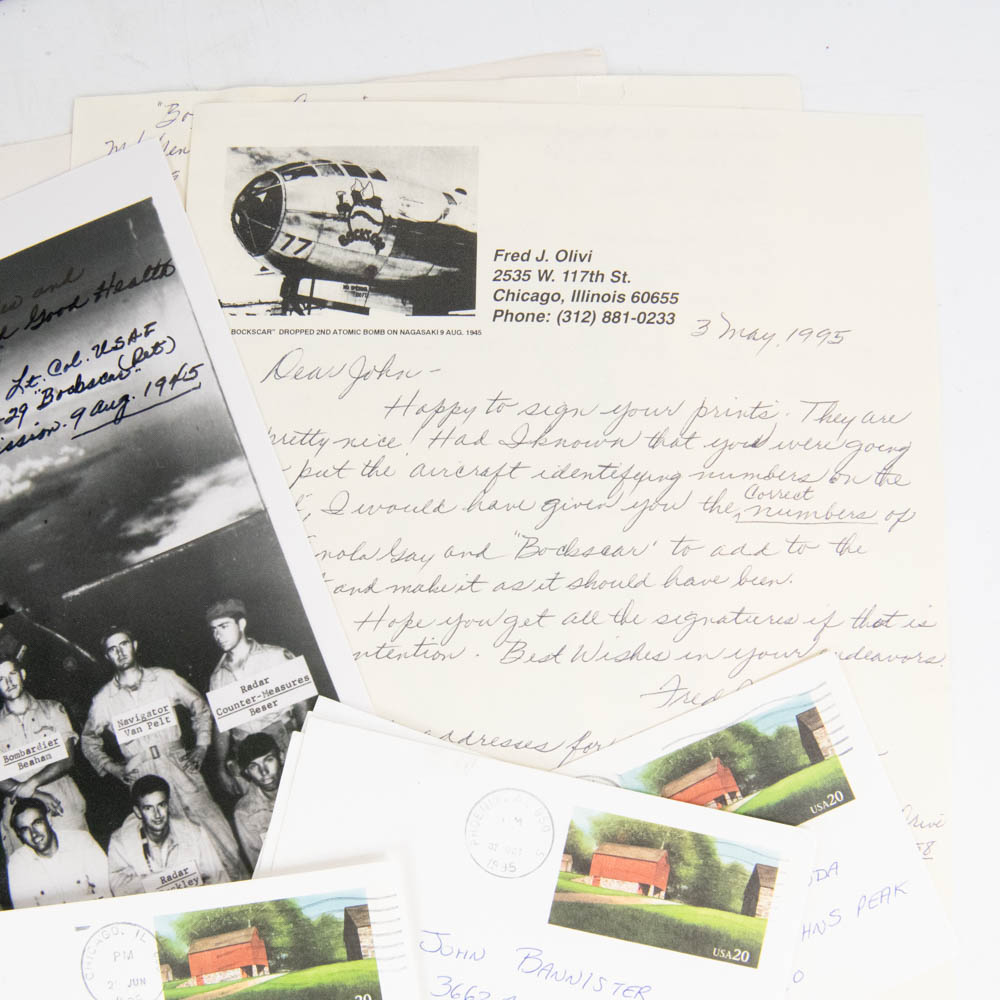 "Bo
77
BOCKSCAR
BOCKSCAR" DROPPED 2ND ATOMIC BOMB ON NAGASAKI 9 AUG. 1945
Fred J. Olivi
2535 W. 117th St.
Chicago, Illinois 60655
Phone: (312) 881-0233
3 May, 1995
Dear John -
Happy to sign your prints. They are
pretty nice! Had I known that you were going
put the aircraft identifying numbers on the
I would have given you the Correct numbers of
nola Gay and "Bockscar" to add to the
and make it as it should have been.
Hope you get all the signatures if that is
ntention. Best Wishes in your endeavors.
Fred
adresses for
rive
8
es and
Good Health
Lt. Col. USAF
(Ret)
-29 "Bockscar"
ission. 9 Aug. 1945
Bombardier
Beahan
Navigator
Van Pelt
Radar
Counter-Measures
Beser
Radar
ckley
PHOENIX, AZ 850
1995
USA20
USA20
DA
HNS PEAK
O
JOHN BANNISTER
3662
CHICAGO, IL
PM
JUN
20